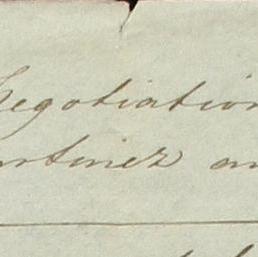 Negotiation
artinez an